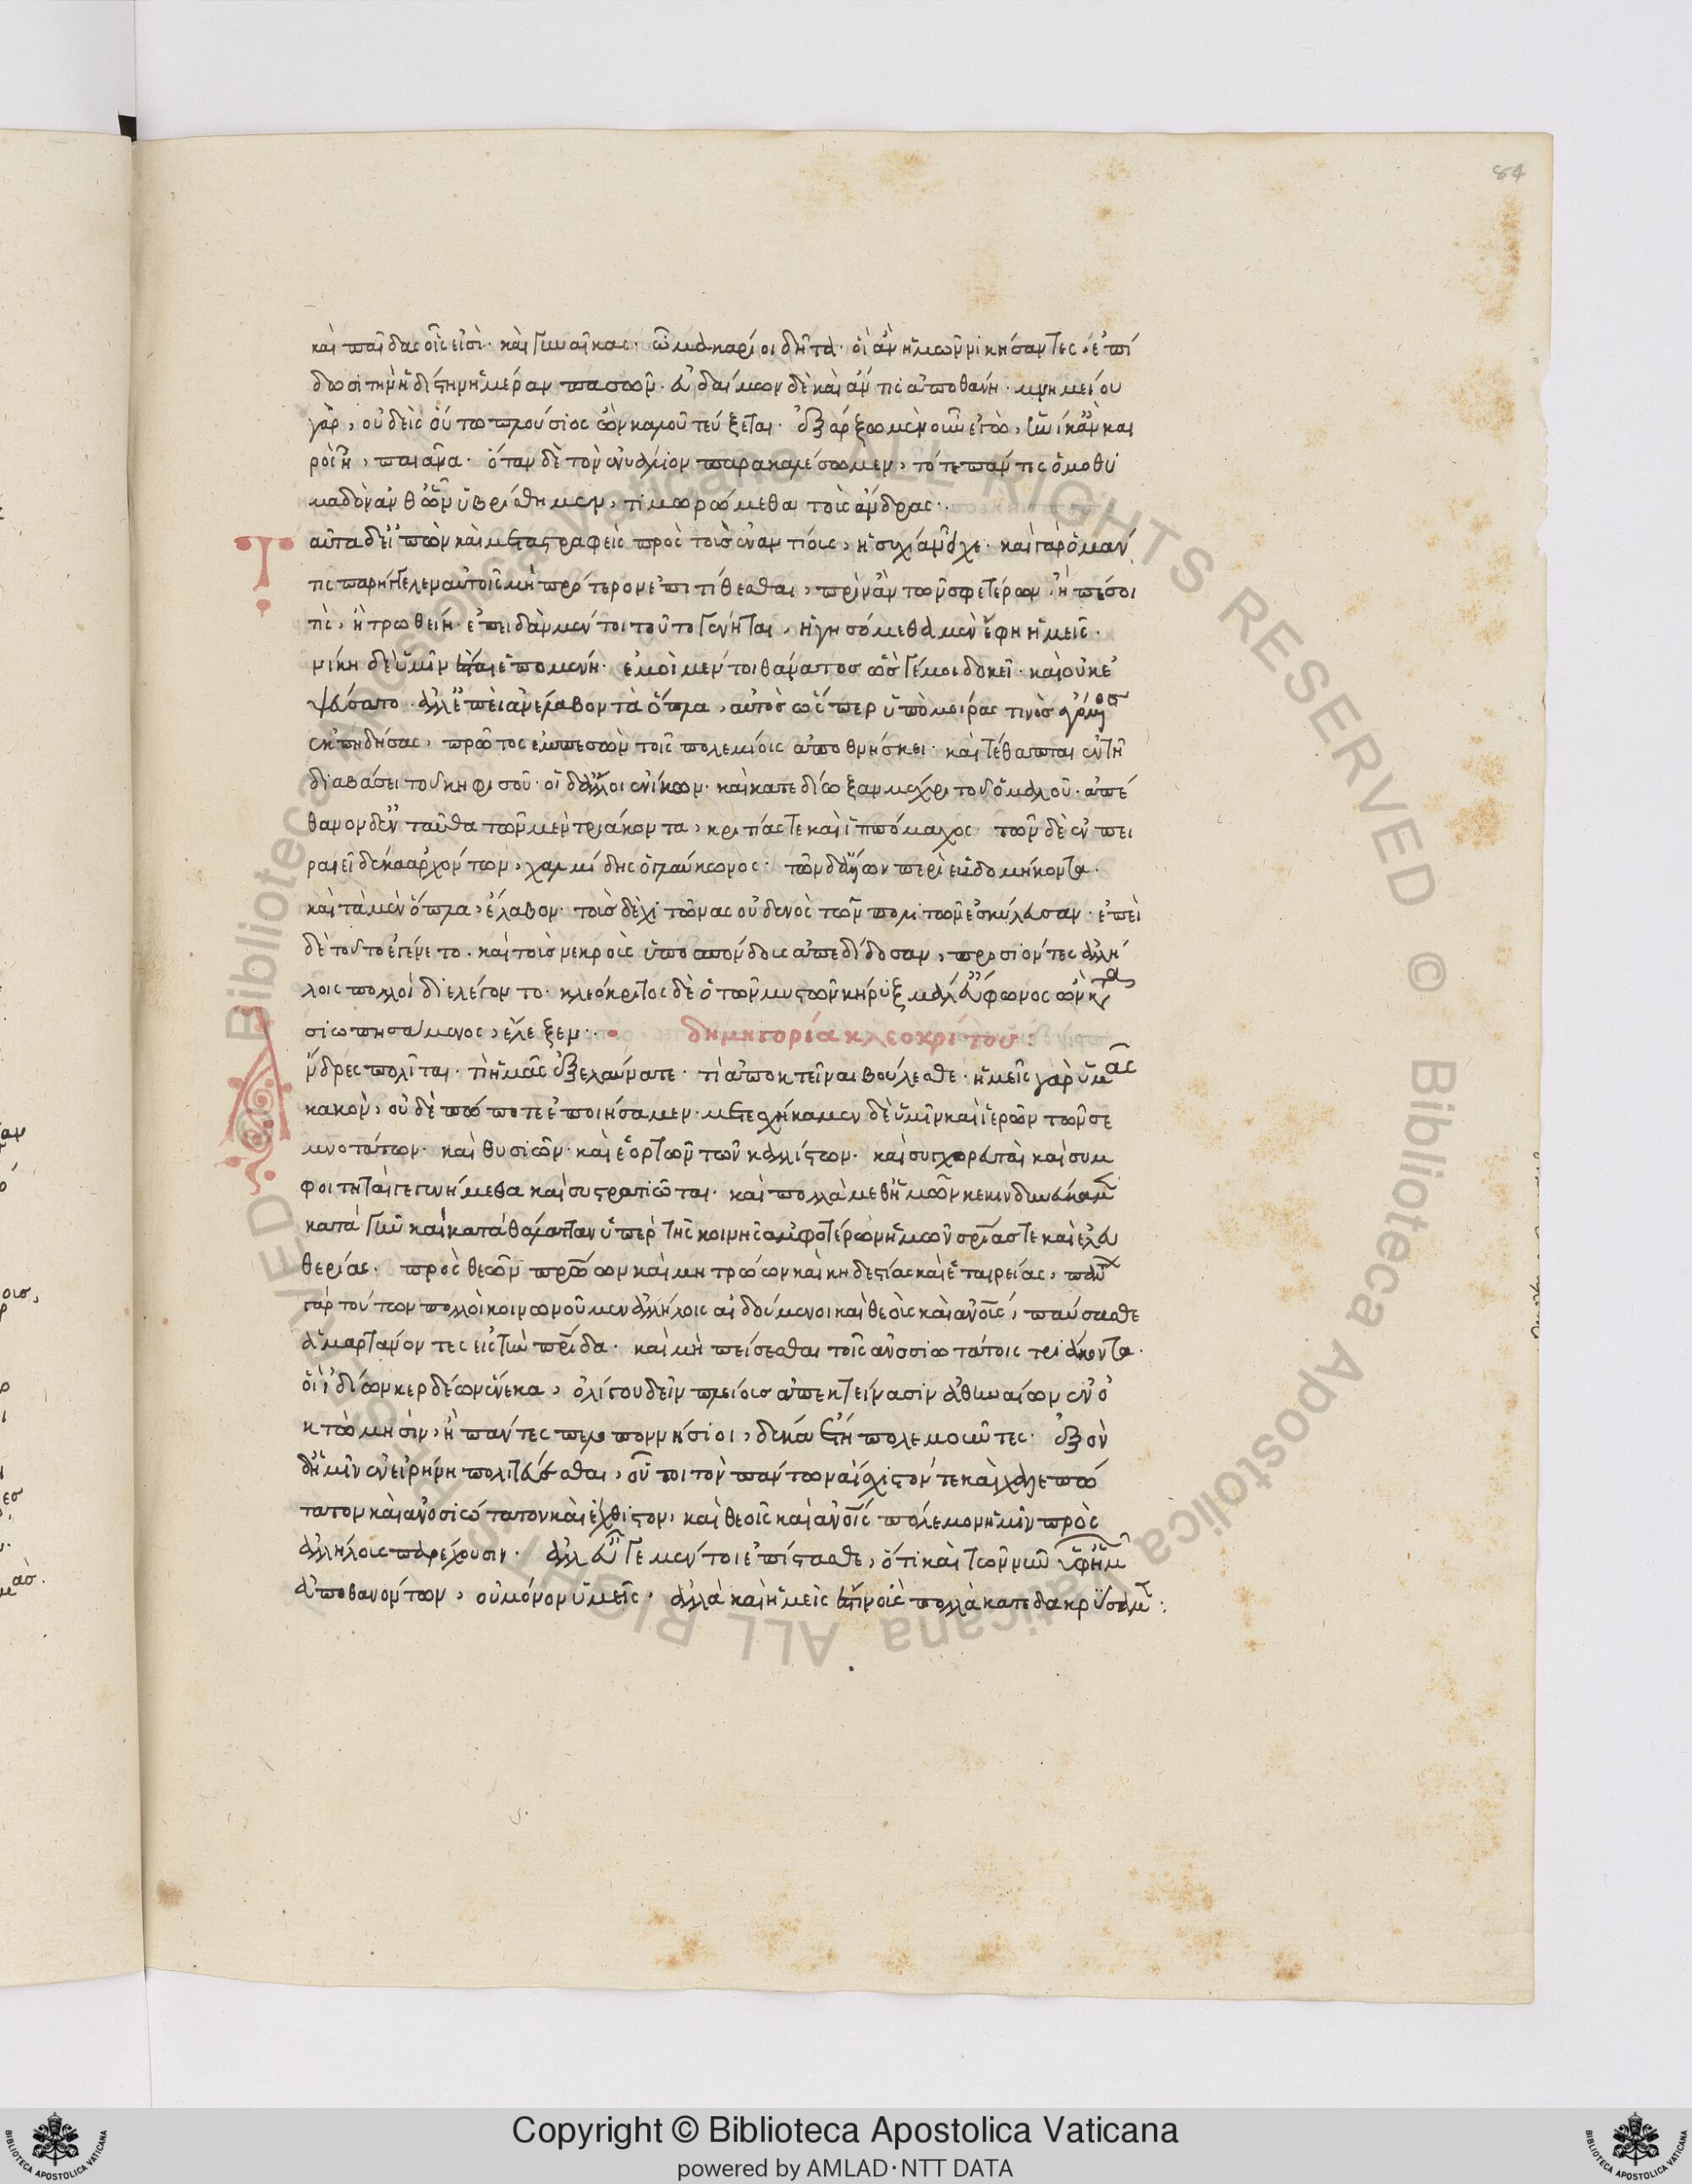 84
καὶ παῖδας οἷς εἰσὶ· καὶ γυναῖκας· ὦ μακάριοι δῆτα· οἳ ἂν ἡμῶν νικήσαντες, ἐπί
δωσι τὴν ἡδίστην ἡμέραν πασῶν· εὐδαίμων δὲ καὶ ἄν τις ἀποθανῇ· μνημείου
γὰρ, οὐδεὶς οὕτω πλούσιος ὢν καλοῦ τεύξεται· ἐξάρξω μὲν οὖν ἐγὼ, ἡνίκ ἂν και
ρὸς ῇ, παιᾶνα· ὅταν δὲ τὸν ἐνυάλιον παρακαλέσωμεν, τότε πάντες ὁμοθυ
μαδὸν ἀνθ ὧν ὑβρίσθημεν, τιμωρώμεθα τοὺς ἄνδρας·
Ταῦτα δ εἰπὼν καὶ μεταστραφεὶς πρὸς τοὺς ἐναντίους, ἡσυχίαν εἶχε· καὶ γὰρ ὁ μάν
τις παρήγγελεν αὐτοῖς μὴ πρότερον ἐπιτίθεσθαι, πρὶν ἂν τῶν σφετέρων ἢ πέσοι
τὶς, ἢ τρωθείη· ἐπειδὰν μέντοι τοῦτο γένηται, ἡγησόμεθα μὲν ἔφη ἡμεῖς·
νίκη δὲ ὑμῖν ἔσται ἑπομένη· ἐμοὶ μέντοι θάνατος ὥς γέ μοι δοκεῖ· καὶ οὐκ ἐ
ψεύσατο· ἀλλ ἐπεὶ ἀνέλαβον τὰ ὅπλα, αὐτὸς ὥσπερ ὑπὸ μοίρας τινὸς ἀγόμενος
ἐκπηδήσας, πρῶτος ἐμπεσὼν τοῖς πολεμίοις ἀποθνήσκει· καὶ τέθαπται ἐν τῇ
διαβάσει τοῦ κηφισοῦ· οἱ δ ἄλλοι ἐνίκων· καὶ κατεδίωξαν μέχρι τοῦ ὁμαλοῦ· ἀπέ
θανον δ ἐνταῦθα τῶν μὲν τριάκοντα, κριτίας τε καὶ ἱππόμαχος· τῶν δὲ ἐν πει
ραιεῖ δέκα ἀρχόντων, χαρμίδης ὁ γλαύκωνος· τῶν δ ἄλλων περὶ ἑβδομήκοντα·
καὶ τὰ μὲν ὅπλα, ἔλαβον· τοὺς δὲ χιτῶνας οὐδενὸς τῶν πολιτῶν ἐσκύλευσαν· ἐπεὶ
δὲ τοῦτο ἐγένετο· καὶ τοὺς νεκροὺς ὑποσπόνδους ἀπεδίδοσαν, προσιόντες ἀλλή
λοις πολλοὶ διελέγοντο· κλεόκριτος δὲ ὁ τῶν μυστῶν κήρυξ μάλ εὔφωνος ὢν κατα
σιωπησάμενος, ἔλεξεν·
δημηγορία κλεοκρίτου:
Ἄνδρες πολῖται· τί ἡμᾶς ἐξελαύνετε· τί ἀποκτεῖναι βούλεσθε· ἡμεῖς γὰρ ὑμᾶς
κακὸν, οὐδὲ πώποτε ἐποιήσαμεν· μετεσχήκαμεν δὲ ὑμῖν καὶ ἱερῶν τῶν σε
μνοτάτων· καὶ θυσιῶν· καὶ ἑορτῶν τῶν καλλίστων· καὶ συγχορευταὶ καὶ συμ
φοιτηταὶ γεγενήμεθα καὶ συστρατιῶται· καὶ πολλὰ μεθ ἡμῶν κεκινδυνεύκαμεν
κατὰ γῆν καὶ κατὰ θάλατταν ὑπὲρ τῆς κοινῆς ἀμφοτέρων ἡμῶν σωτηρίας τε καὶ ἐλευ
θερίας· πρὸς θεῶν πατρώων καὶ μητρώων καὶ κηδεστίας καὶ ἑταιρείας, πάντων
γὰρ τούτων πολλοὶ κοινωνοῦμεν ἀλλήλοις αἰδούμενοι καὶ θεοὺς καὶ ἀνους, παύσασθε
ἁμαρτάνοντες εἰς τὴν πρίδα· καὶ μὴ πείσεσθαι τοῖς ἀνοσιωτάτοις τριάκοντα·
οἳ ἰδίων κερδέων ἕνεκα, ὀλίγου δεῖν πλείους ἀπεκτείνασιν ἀθηναίων ἐν ὀ
κτὼ μησίν, ἢ πάντες πελοποννήσιοι, δέκα ἔτη πολεμοῦντες· ἐξὸν
δ ἡμῖν ἐν εἰρήνῃ πολιτεύεσθαι, οὗτοι τὸν πάντων αἴσχιστόν τε καὶ χαλεπώ
τατον καὶ ἀνοσιώτατον καὶ ἔχθιστον, καὶ θεοῖς καὶ ἀνοις πόλεμον ἡμῖν πρὸς
ἀλλήλους παρέχουσιν· ἀλλ εὖ γε μέντοι ἐπίστασθε, ὅτι καὶ τῶν νῦν ὑφ ἡμῶν
ἀποθανόντων, οὐ μόνον ὑμεῖς· ἀλλὰ καὶ ἡμεῖς ἔστιν οὓς πολλὰ κατεδακρύσαμεν:
Copyright © Biblioteca Apostolica Vaticana
powered by AMLAD·NTT DATA